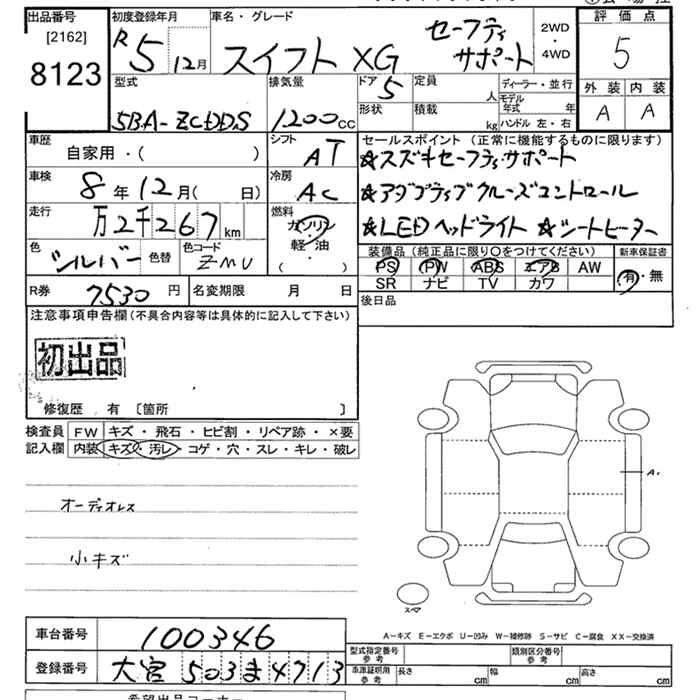 出品番号 初度登録年月 車名・グレード 評価点
[2162]
8123
R5 12月 スイフト XG セーフティサポート 2WD・4WD 5
型式 排気量 ドア 5 定員 人 ディーラー・並行 外装 内装
形状 積載 kg モデル年式 年 ハンドル 左・右 A A
5BA-ZCDDS 1200cc
車歴 シフト セールスポイント (正常に機能するものに限ります)
自家用・( ) AT ★スズキセーフティサポート
車検 8年12月( 日) 冷房 AC ★アダプティブクルーズコントロール
走行 万2千267km 燃料 ガソリン 軽・油 ( ) ★LEDヘッドライト ★シートヒーター
色 シルバー 色替 色コード ZMU 装備品 (純正品に限り〇をつけてください) 新車保証書
PS PW ABS エアB AW 有・無
SR ナビ TV カワ
R券 7530円 名変期限 月 日 後日品
注意事項申告欄(不具合内容等は具体的に記入して下さい)
初出品
修復歴 有 〔箇所 〕
検査員 FW キズ・飛石・ヒビ割・リペア跡・×要
記入欄 内装 キズ・汚レ・コゲ・穴・スレ・キレ・破レ
A1
オーディオレス
小キズ
スペア
A-キズ E-エクボ U-凹み W-補修跡 S-サビ C-腐食 XX-交換済
車台番号 100346 型式指定番号 参考 類別区分番号 参考
登録番号 大宮 503ま4713 車庫証明用 参考 長さ cm 幅 cm 高さ cm
希望出品コーナー